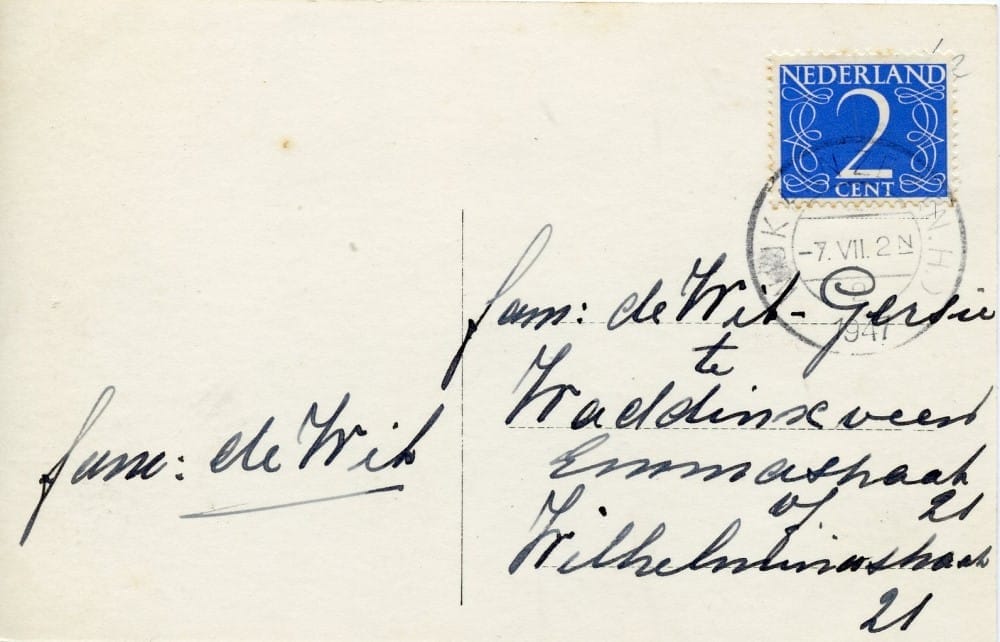 NEDERLAND
2
CENT
-7.VII.2N
1947
fam: de Wit
fam: de Wit-Gersie
te
Waddinxveen
Emmastraat
of 21
Wilhelminastraat
21